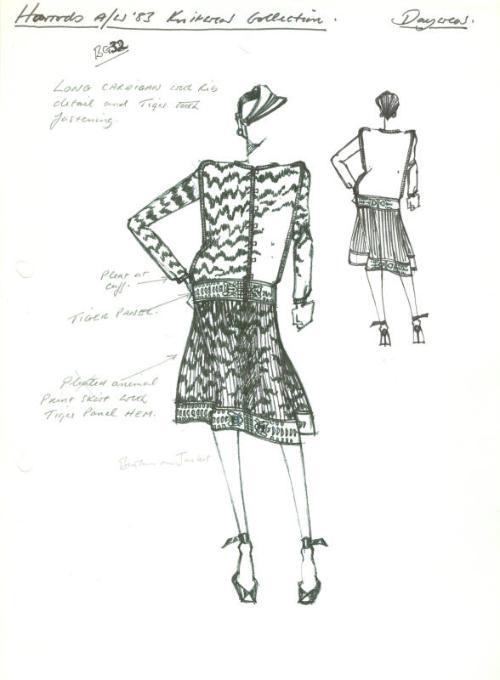 Harrods A/W '83 Knitwear Collection. Daywear.
BG32
LONG CARDIGAN with Rib
detail and Tiger tooth
fastening.
Pleat at
cuff.
TIGER PANEL.
Pleated animal
Print Skirt with
Tiger Panel HEM.